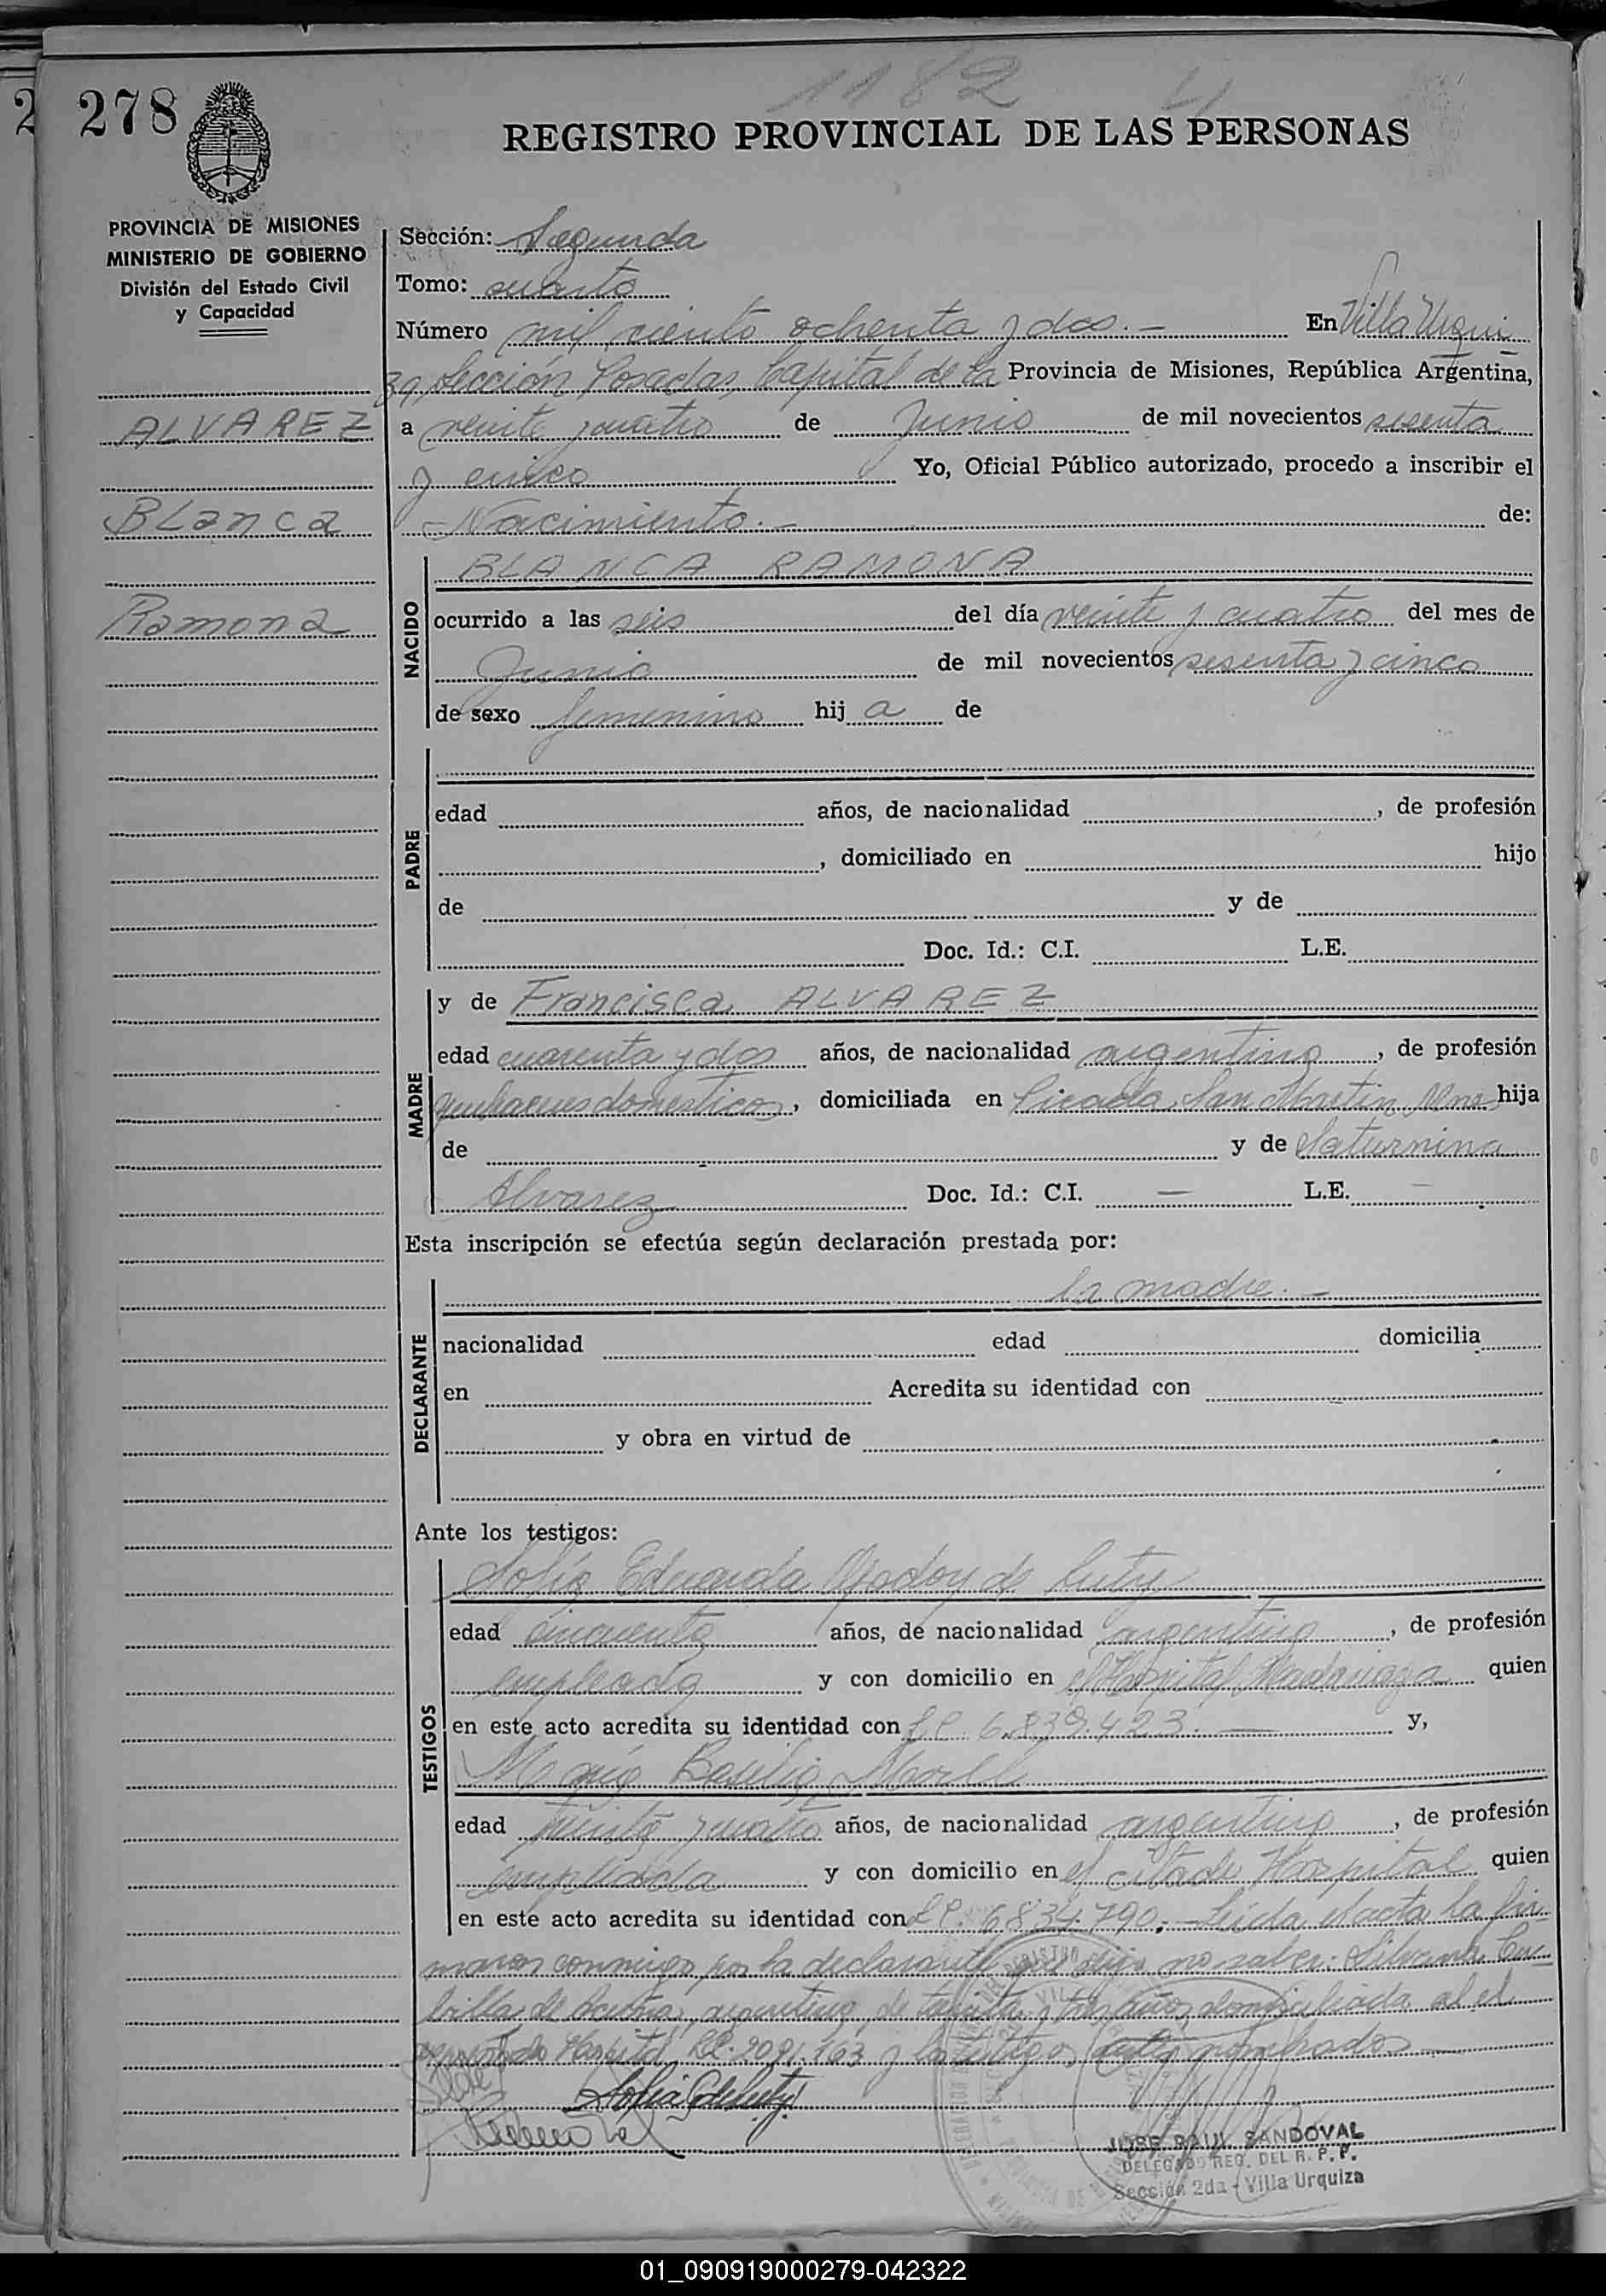 1182 4
278
REGISTRO PROVINCIAL DE LAS PERSONAS
PROVINCIA DE MISIONES
MINISTERIO DE GOBIERNO
División del Estado Civil
y Capacidad
ALVAREZ
Blanca
Ramona
Sección: Segunda
Tomo: cuarto
Número mil ciento ochenta y dos.- En Villa Urqui
za, Sección Posadas, Capital de la Provincia de Misiones, República Argentina,
a veinte y cuatro de Junio de mil novecientos sesenta
y cinco Yo, Oficial Público autorizado, procedo a inscribir el
Nacimiento.- de:
NACIDO
BLANCA RAMONA
ocurrido a las seis del día veinte y cuatro del mes de
Junio de mil novecientos sesenta y cinco
de sexo femenino hij a de
PADRE
edad años, de nacionalidad , de profesión
, domiciliado en hijo
de y de
Doc. Id.: C.I. L.E.
MADRE
y de Francisca ALVAREZ
edad cuarenta y dos años, de nacionalidad argentina , de profesión
quehaceres domesticos, domiciliada en Picada San Martin Mnes hija
de y de Saturnina
Alvarez Doc. Id.: C.I. — L.E. —
Esta inscripción se efectúa según declaración prestada por:
DECLARANTE
la madre.-
nacionalidad edad domicilia
en Acredita su identidad con
y obra en virtud de
Ante los testigos:
TESTIGOS
Sofía Eduarda Godoy de
edad cincuenta años, de nacionalidad argentina , de profesión
empleada y con domicilio en el Hospital Madariaga quien
en este acto acredita su identidad con L.C. 6.839.423.— y,
María Basilia
edad treinta y cuatro años, de nacionalidad argentina , de profesión
empleada y con domicilio en el citado Hospital quien
en este acto acredita su identidad con L.C. 6834.790.- Leida el acta la fir-
maron conmigo por la declarante que dijo no saber: Silvana
de argentina, de treinta y tres años, domiciliada al el
Hospital L.C. 2091.163 y los testigos nombrados —
JOSE RAUL SANDOVAL
DELEGADO REG. DEL R. P. P.
Sección 2da - Villa Urquiza
01_090919000279-042322